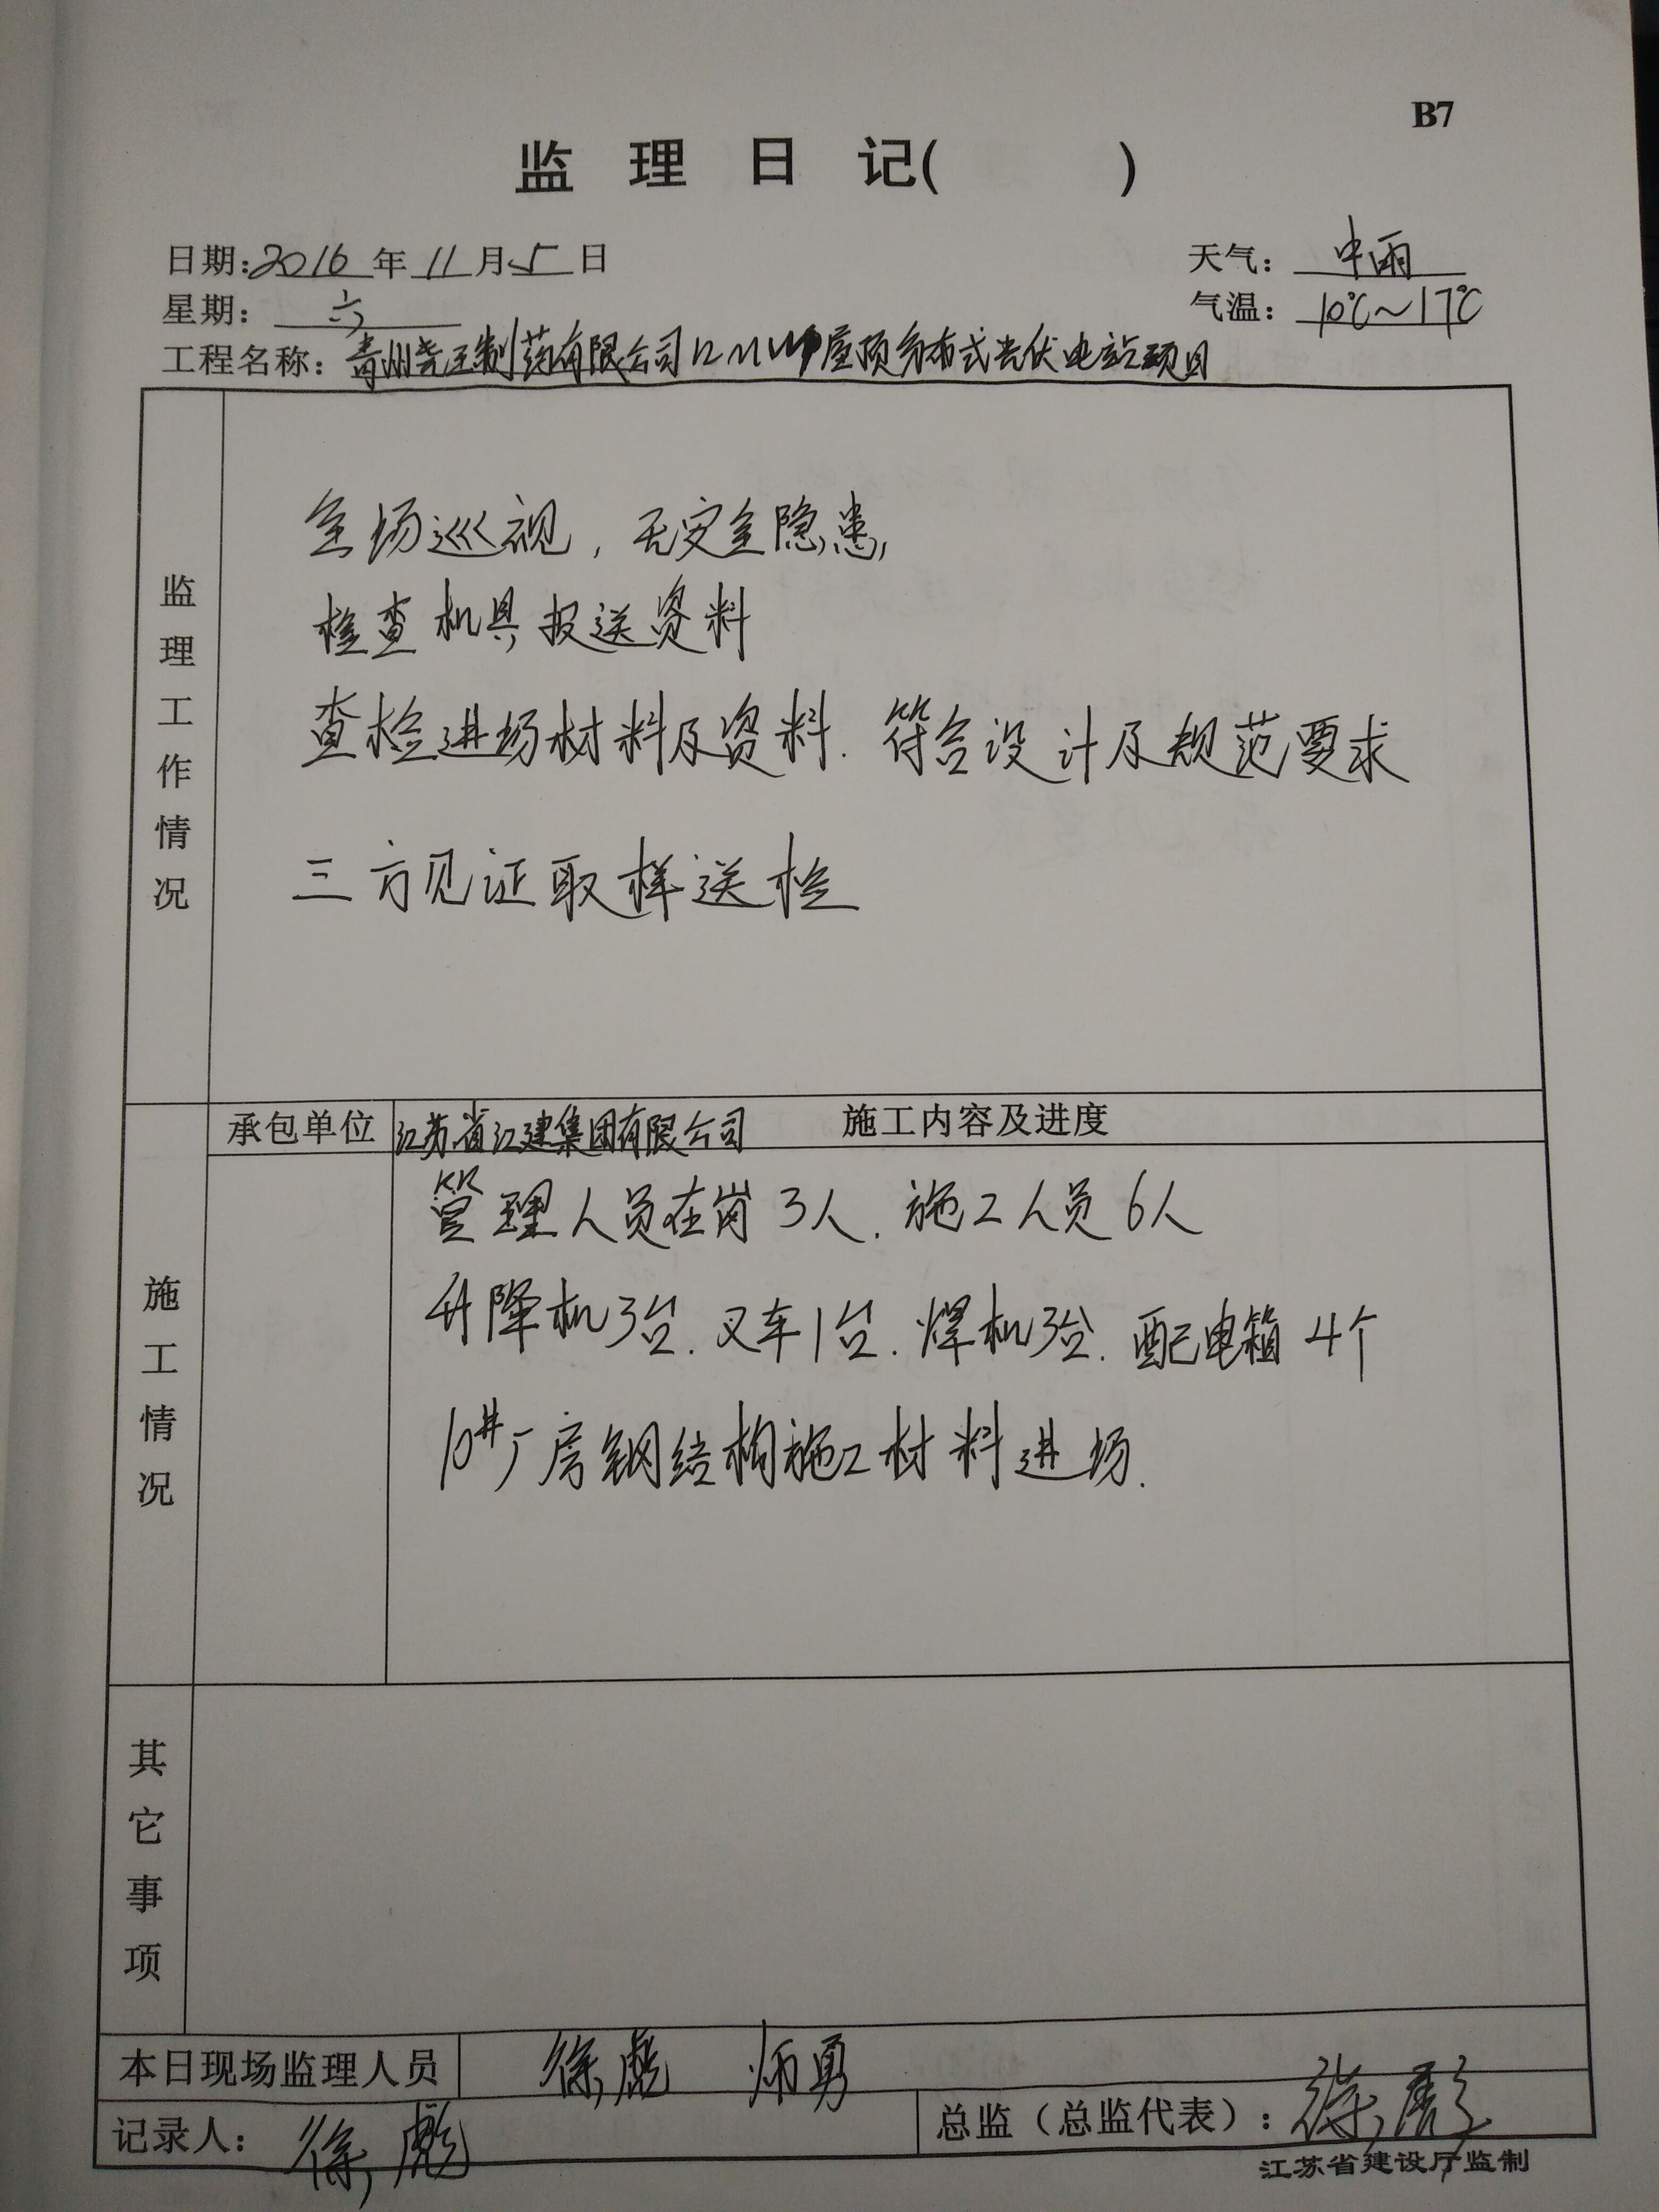 B7
监理日记( )
日期:2016年11月5日 天气:中雨
星期:六 气温:10℃~17℃
工程名称:青州尧王制药有限公司屋顶分布式光伏电站项目
监理工作情况
全场巡视,无安全隐患,
检查机具报送资料
查检进场材料及资料.符合设计及规范要求
三方见证取样送检
承包单位 江苏省江建集团有限公司 施工内容及进度
施工情况
管理人员在岗3人.施工人员6人
升降机3台.叉车1台.焊机3台.配电箱4个
10#厂房钢结构施工材料进场.
其它事项
本日现场监理人员 徐彪 勇
记录人:徐彪 总监(总监代表):徐彪
江苏省建设厅监制